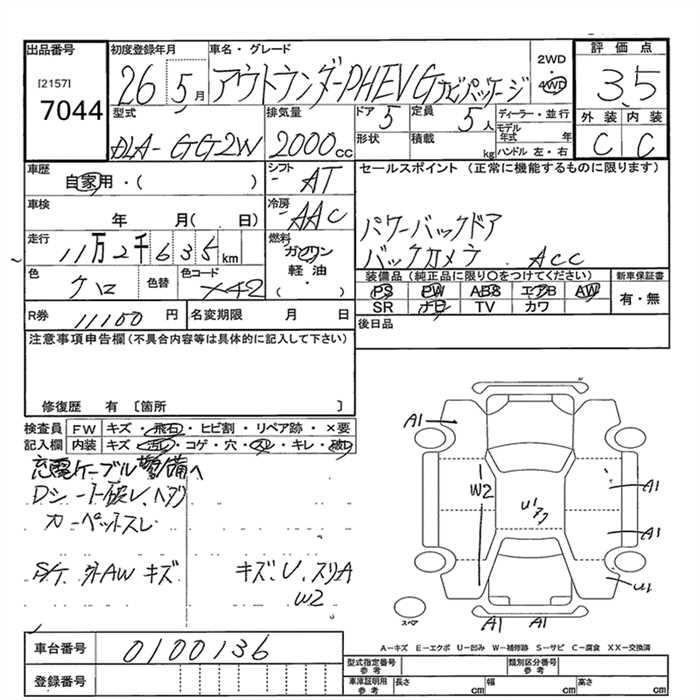 出品番号 初度登録年月 車名・グレード 2WD 評価点
[2157] 26 5月 アウトランダーPHEV Gナビパッケージ 4WD 3.5
7044 型式 排気量 ドア 5 定員 5人 ディーラー・並行 外装 内装
DLA-GG2W 2000cc 形状 積載 kg モデル年式 年 C C
ハンドル 左・右
車歴 シフト AT セールスポイント(正常に機能するものに限ります)
自家用・( )
車検 冷房 AAC パワーバックドア
年 月( 日)
走行 11万2千635km 燃料 ガソリン バックカメラ ACC
軽・油
・( )
色 クロ 色替 色コード X42 装備品(純正品に限り〇をつけてください) 新車保証書
PS PW ABS エアB AW 有・無
SR ナビ TV カワ
R券 11100円 名変期限 月 日 後日品
注意事項申告欄(不具合内容等は具体的に記入して下さい)
修復歴 有 〔箇所 〕
検査員 FW キズ・飛石・ヒビ割・リペア跡・×要
記入欄 内装 キズ・汚レ・コゲ・穴・スレ・キレ・破レ
充電ケーブル
Dシート破レ、ヘタリ
カーペットスレ
外AWキズ キズ、U、スリA
W2
A1
W2
Uアク
A1
A1
U1
A1 A1
スペア
A−キズ E−エクボ U−凹み W−補修跡 S−サビ C−腐食 XX−交換済
車台番号 0100136
登録番号
型式指定番号 参考 類別区分番号 参考
車庫証明用 参考 長さ cm 幅 cm 高さ cm